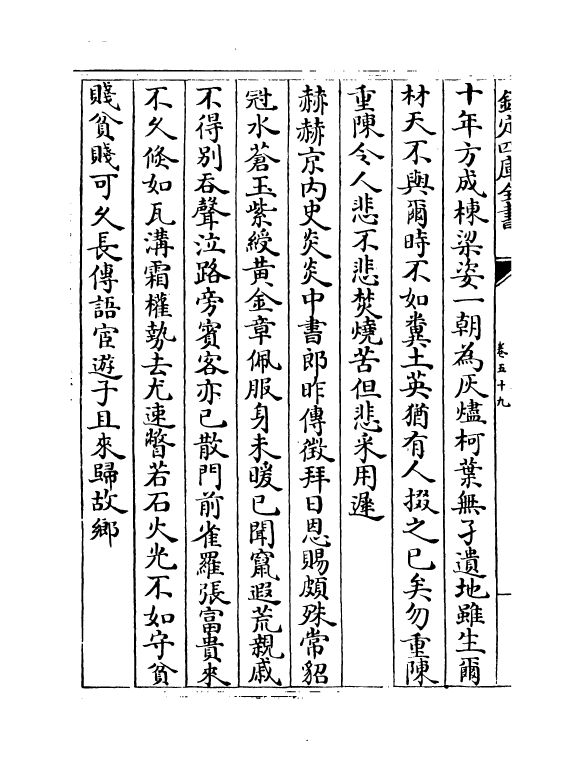 欽定四庫全書
卷五十九
十年方成棟梁姿一朝為灰燼柯葉無孑遺地雖生爾
材天不與爾時不如糞土英猶有人掇之已矣勿重陳
重陳令人悲不悲焚燒苦但悲采用遲
赫赫京内史炎炎中書郎昨傳徵拜日恩賜頗殊常貂
冠水蒼玉紫綬黃金章佩服身未暖已聞竄遐荒親戚
不得別吞聲泣路旁賓客亦已散門前雀羅張富貴來
不久倐如瓦溝霜權勢去尤速瞥若石火光不如守貧
賤貧賤可久長傳語宦遊子且來歸故鄉